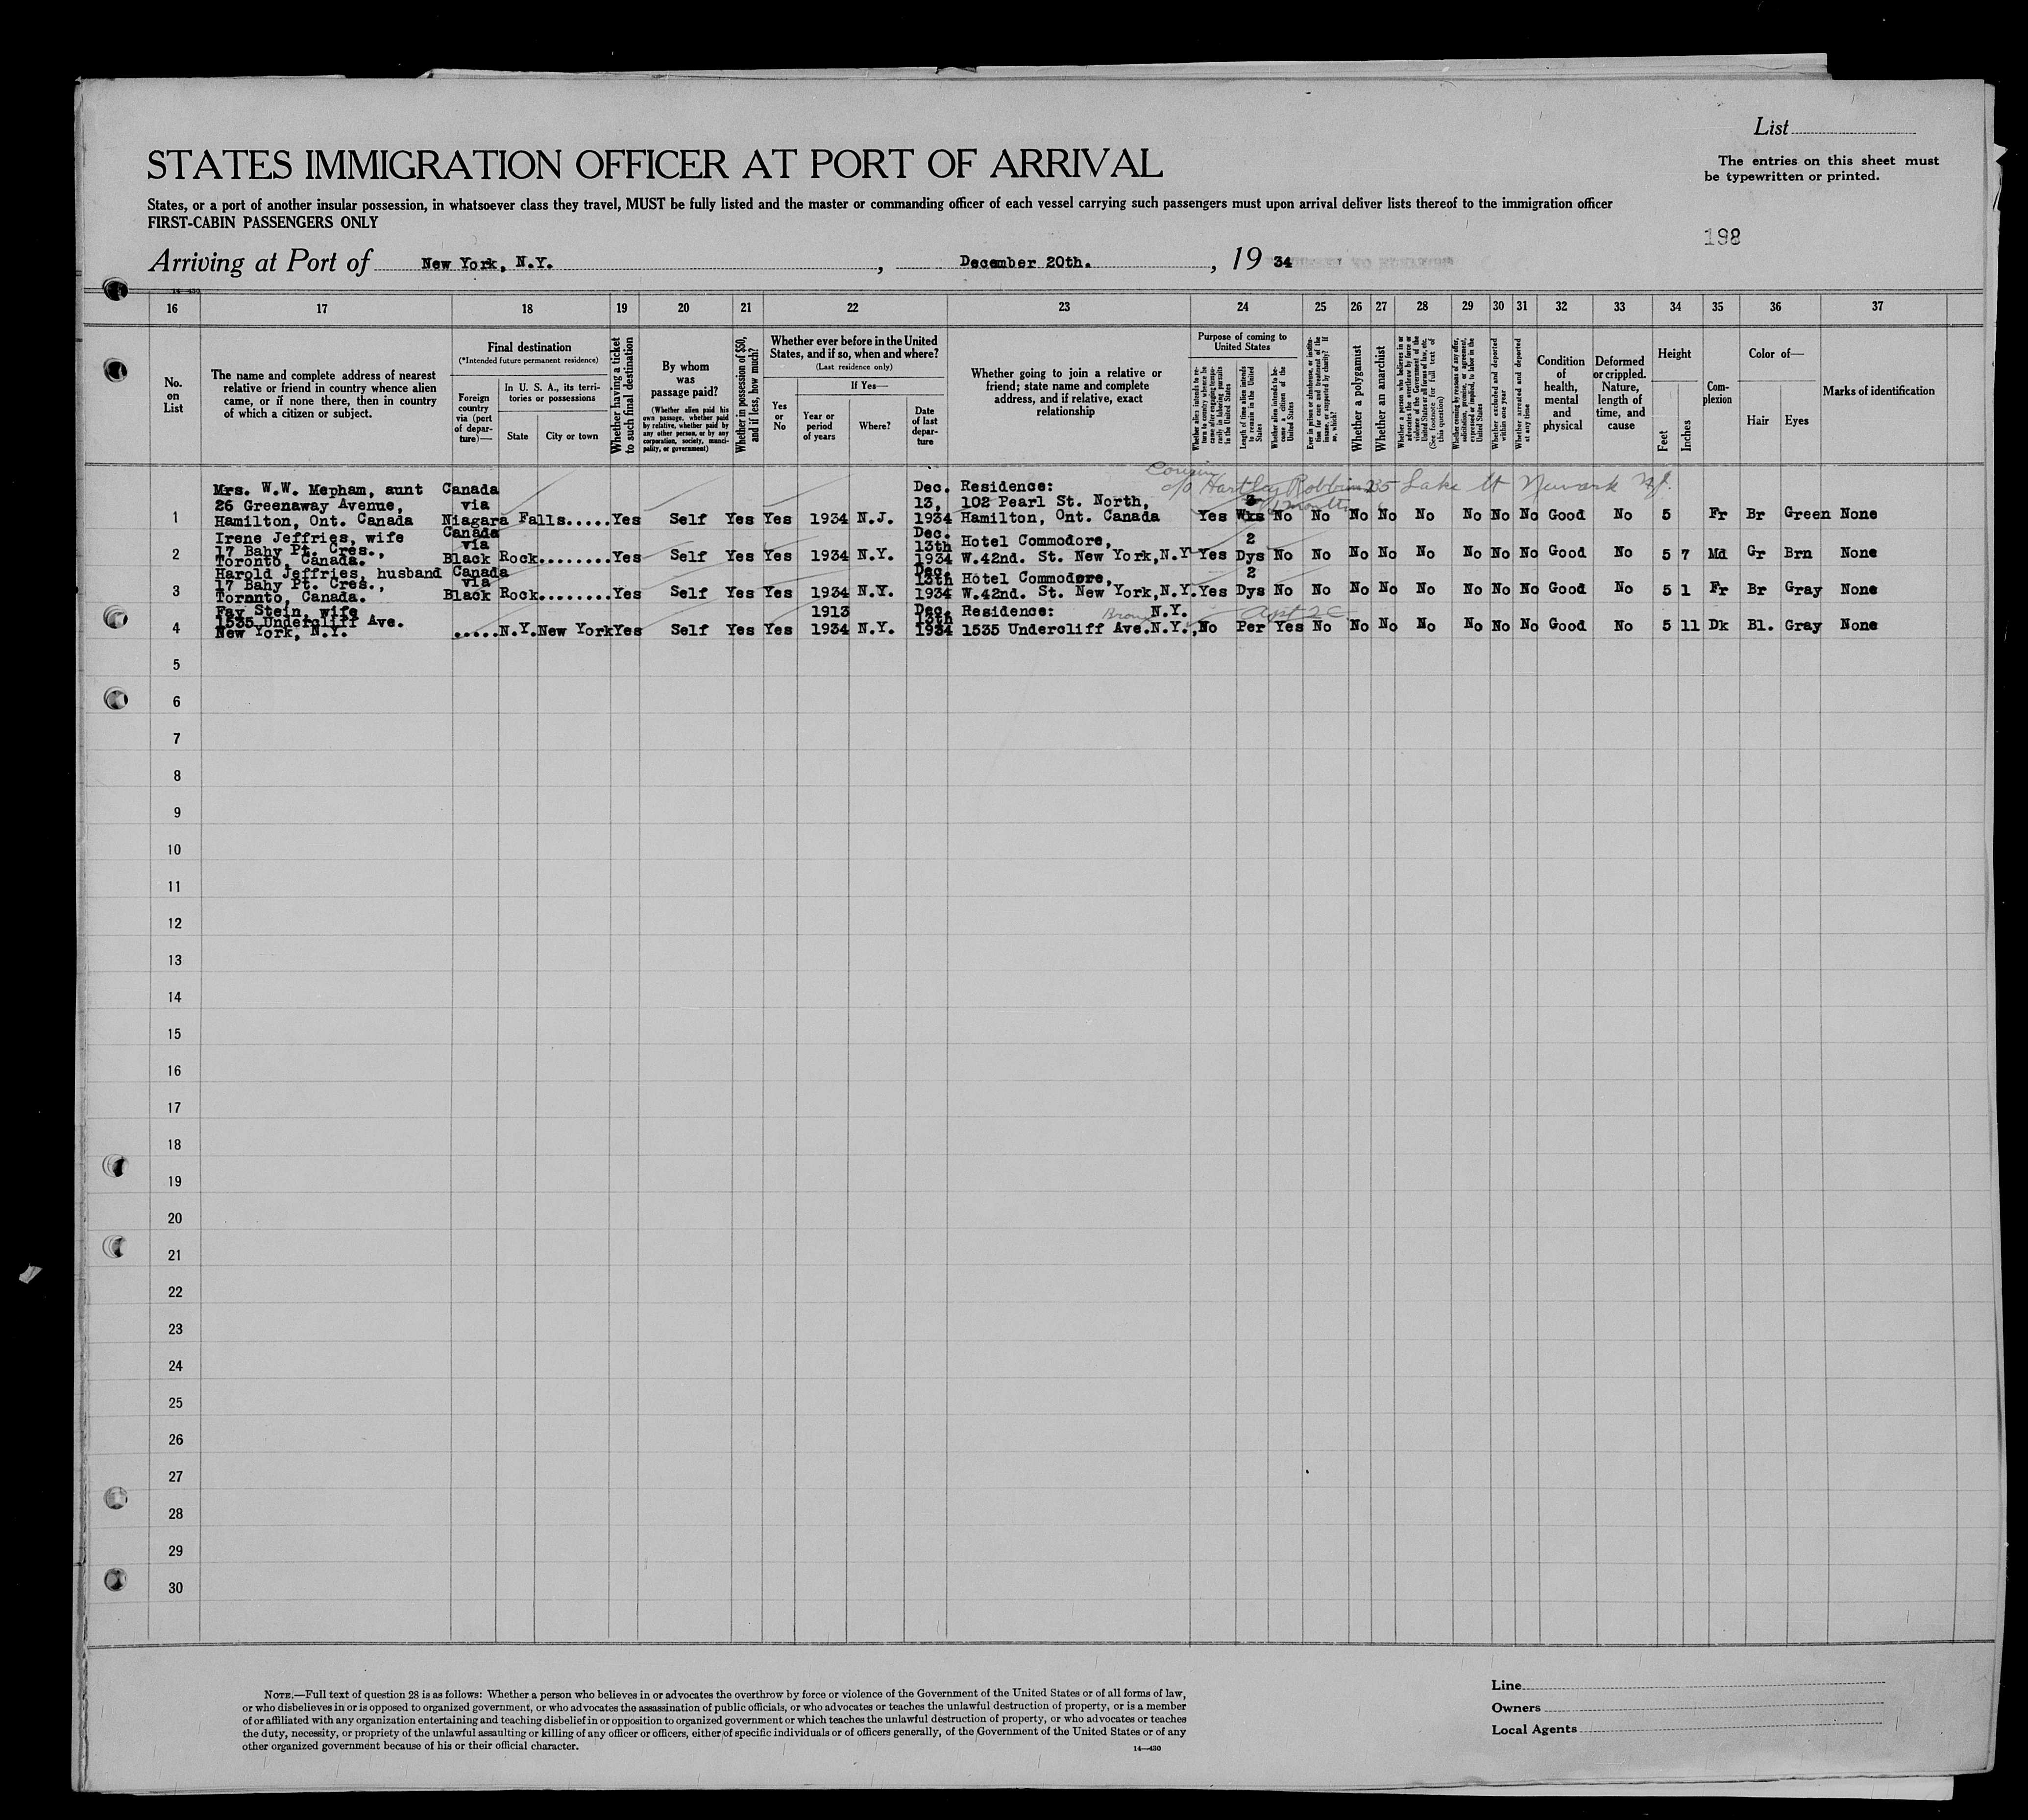 List
The entries on this sheet must
be typewritten or printed.
STATES IMMIGRATION OFFICER AT PORT OF ARRIVAL
States, or a port of another insular possession, in whatsoever class they travel, MUST be fully listed and the master or commanding officer of each vessel carrying such passengers must upon arrival deliver lists thereof to the immigration officer
FIRST-CABIN PASSENGERS ONLY
198
Arriving at Port of New York, N.Y., December 20th., 19 34
14-430
16 17 18 19 20 21 22 23 24 25 26 27 28 29 30 31 32 33 34 35 36 37
No. on List
The name and complete address of nearest
relative or friend in country whence alien
came, or if none there, then in country
of which a citizen or subject.
Final destination
(*Intended future permanent residence)
Foreign country via (port of departure)—
In U. S. A., its territories or possessions
State
City or town
Whether having a ticket to such final destination
By whom was passage paid?
(Whether alien paid his own passage, whether paid by relative, whether paid by any other person, or by any corporation, society, municipality, or government)
Whether in possession of $50, and if less, how much?
Whether ever before in the United
States, and if so, when and where?
(Last residence only)
Yes or No
If Yes—
Year or period of years
Where?
Date of last departure
Whether going to join a relative or
friend; state name and complete
address, and if relative, exact
relationship
Purpose of coming to United States
Whether alien intends to return to country whence he came after engaging temporarily in laboring pursuits in the United States
Length of time alien intends to remain in the United States
Whether alien intends to become a citizen of the United States
Ever in prison or almshouse, or institution for care and treatment of the insane, or supported by charity? If so, which?
Whether a polygamist
Whether an anarchist
Whether a person who believes in or advocates the overthrow by force or violence of the Government of the United States or all forms of law, etc. (See footnote for full text of this question)
Whether coming by reasons of any offer, solicitation, promise, or agreement, expressed or implied, to labor in the United States
Whether excluded and deported within one year
Whether arrested and deported at any time
Condition of health, mental and physical
Deformed or crippled. Nature, length of time, and cause
Height
Feet
Inches
Complexion
Color of—
Hair
Eyes
Marks of identification
Cousin
c/o Hartley Robbins 235 Lake St Newark N.J.
Mrs. W.W. Mepham, aunt Canada Dec. Residence:
26 Greenaway Avenue, via 13, 102 Pearl St. North, 3
1 Hamilton, Ont. Canada Niagara Falls.....Yes Self Yes Yes 1934 N.J. 1934 Hamilton, Ont. Canada Yes Wks No No No No No No No No Good No 5 Fr Br Green None
Irene Jeffries, wife Canada Dec.
17 Bahy Pt. Cres., via 13th Hotel Commodore, 2
2 Toronto, Canada. Black Rock........Yes Self Yes Yes 1934 N.Y. 1934 W.42nd. St. New York,N.Y Yes Dys No No No No No No No No Good No 5 7 Md Gr Brn None
Harold Jeffries, husband Canada Dec.
17 Bahy Pt. Cres., via 13th Hotel Commodore, 2
3 Toronto, Canada. Black Rock........Yes Self Yes Yes 1934 N.Y. 1934 W.42nd. St. New York,N.Y. Yes Dys No No No No No No No No Good No 5 1 Fr Br Gray None
Fay Stein, wife 1913 Dec. Residence: Bronx N.Y.
1535 Undercliff Ave. 13th
4 New York, N.Y. .....N.Y.New York Yes Self Yes Yes 1934 N.Y. 1934 1535 Undercliff Ave.N.Y., No Per Yes No No No No No No No Good No 5 11 Dk Bl. Gray None
5
6
7
8
9
10
11
12
13
14
15
16
17
18
19
20
21
22
23
24
25
26
27
28
29
30
NOTE.—Full text of question 28 is as follows: Whether a person who believes in or advocates the overthrow by force or violence of the Government of the United States or of all forms of law,
or who disbelieves in or is opposed to organized government, or who advocates the assassination of public officials, or who advocates or teaches the unlawful destruction of property, or is a member
of or affiliated with any organization entertaining and teaching disbelief in or opposition to organized government or which teaches the unlawful destruction of property, or who advocates or teaches
the duty, necessity, or propriety of the unlawful assaulting or killing of any officer or officers, either of specific individuals or of officers generally, of the Government of the United States or of any
other organized government because of his or their official character.
14—430
Line
Owners
Local Agents